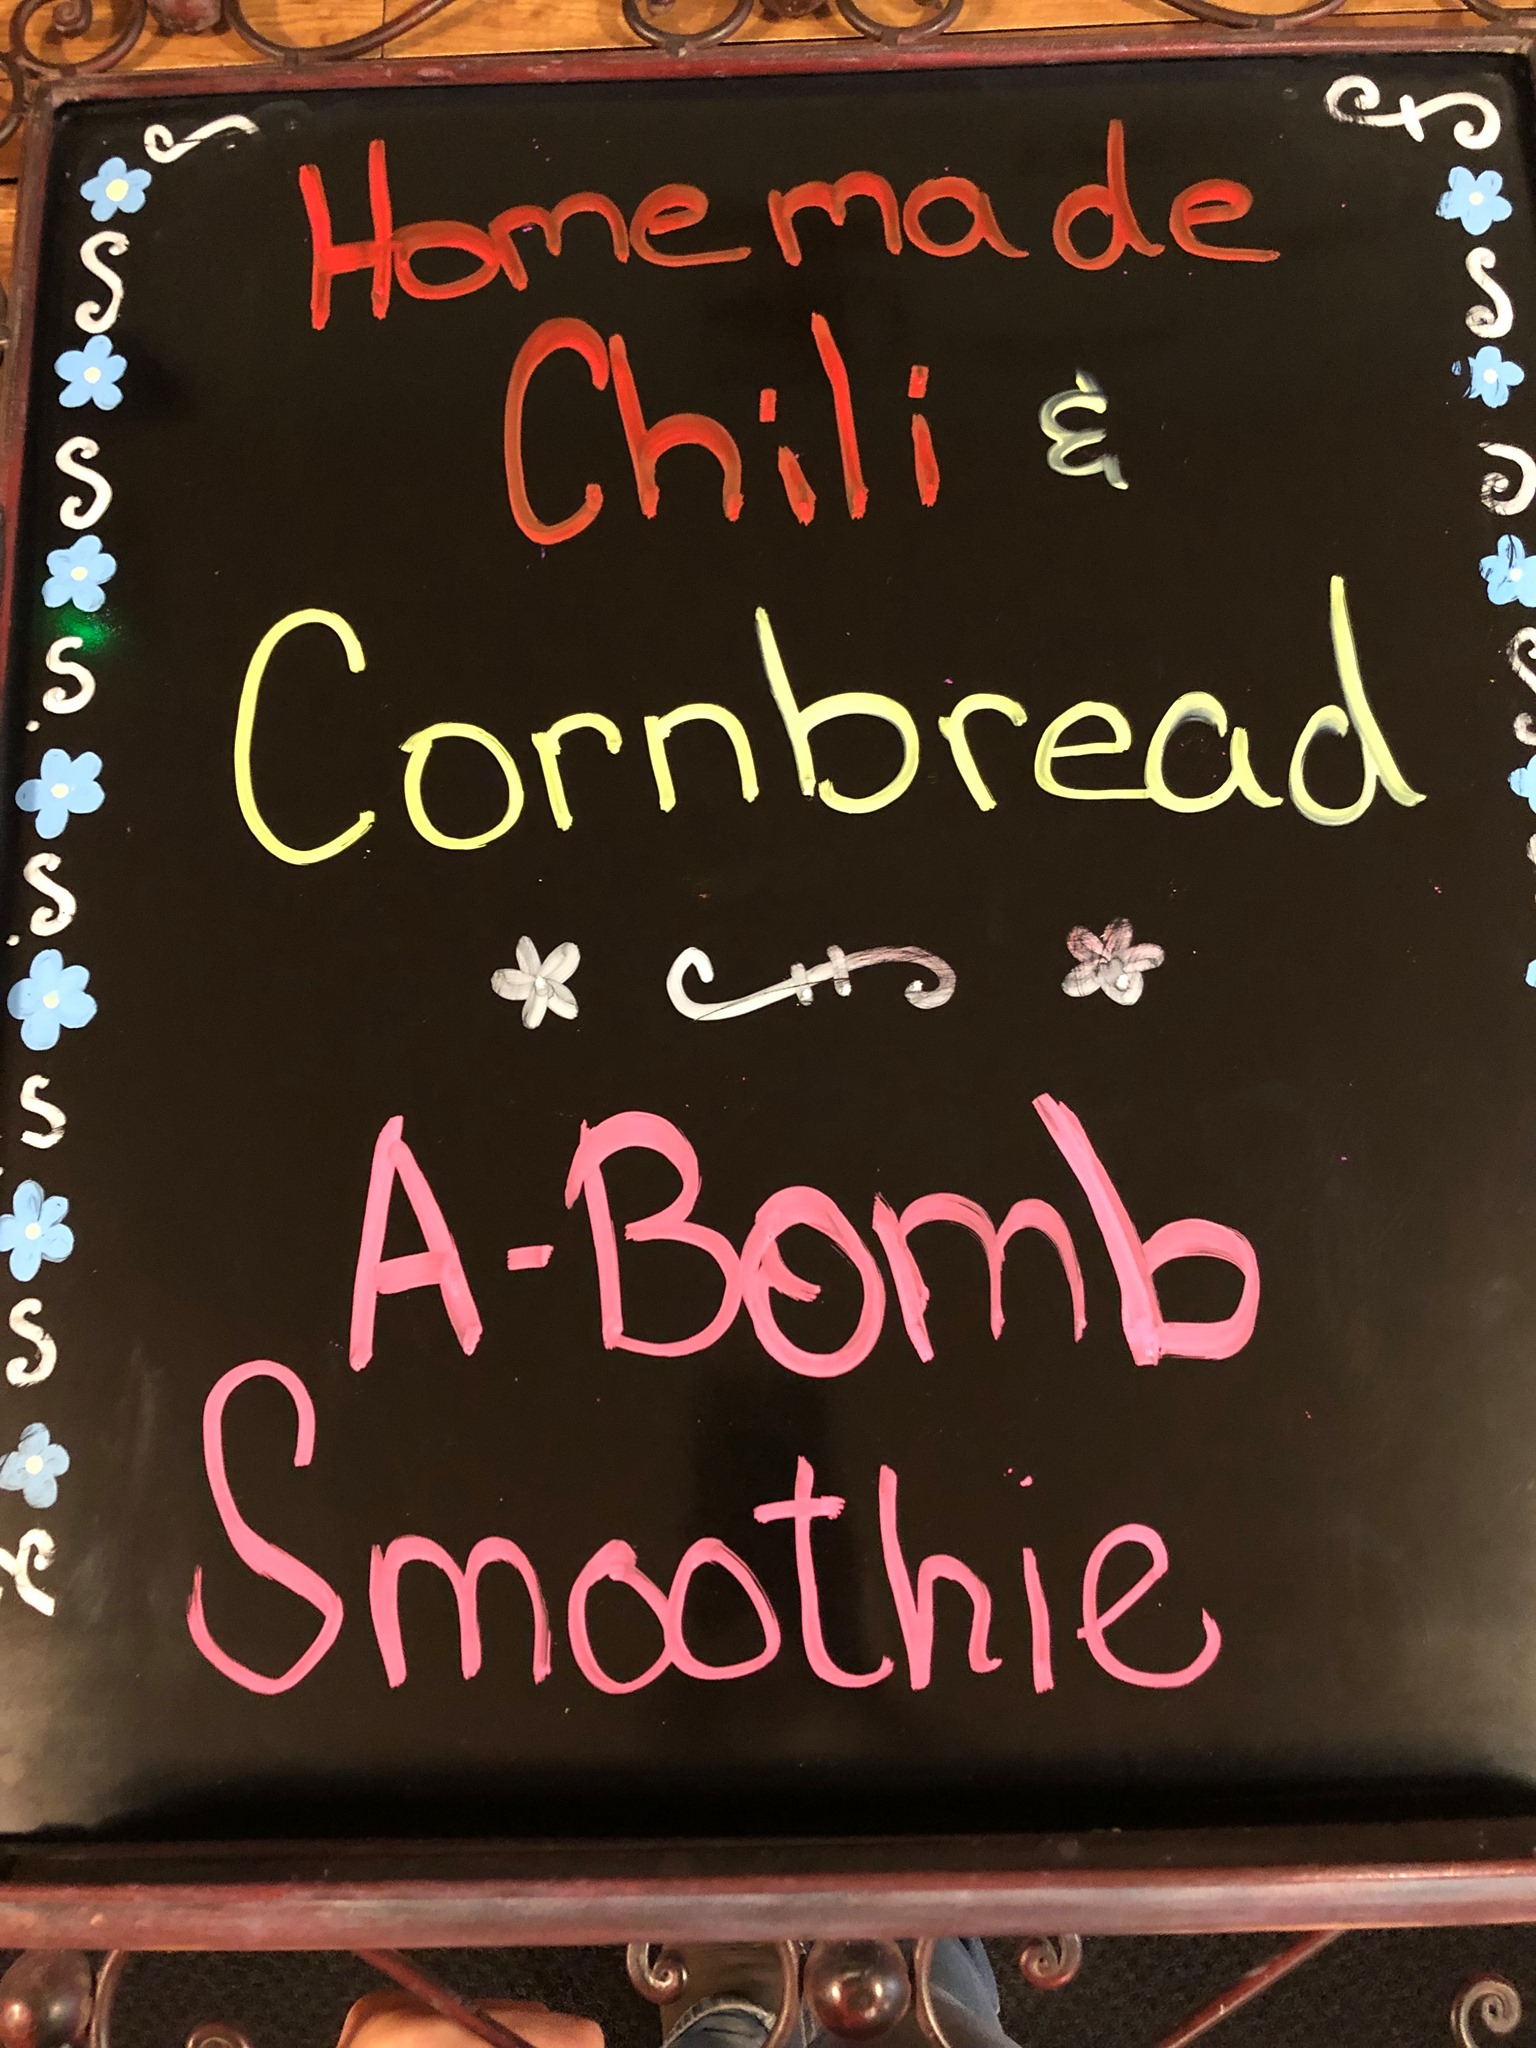 Homemade
Chili &
Cornbread
A-Bomb
Smoothie